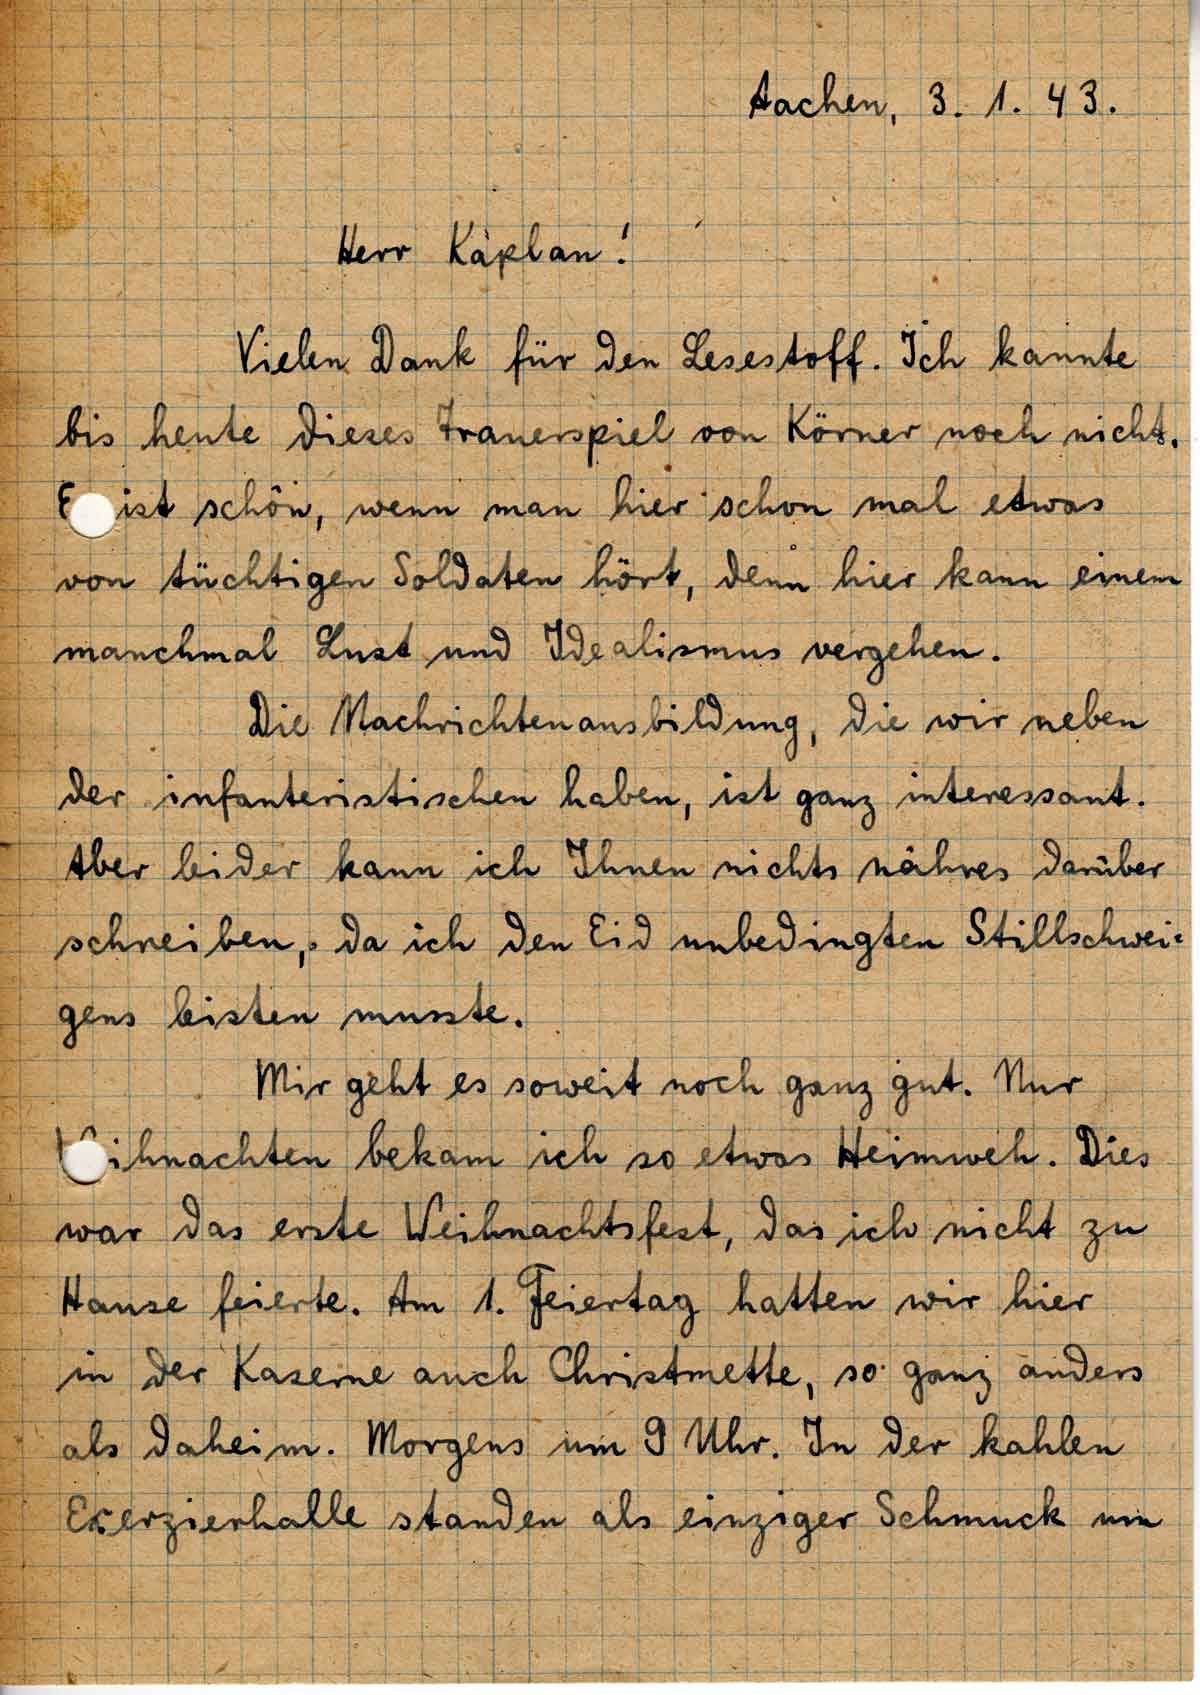 Aachen, 3. 1. 43.
Herr Kaplan!
Vielen Dank für den Lesestoff. Ich kannte
bis heute dieses Trauerspiel von Körner noch nicht.
E ist schön, wenn man hier schon mal etwas
von tüchtigen Soldaten hört, denn hier kann einem
manchmal Lust und Idealismus vergehen.
Die Nachrichtenausbildung, die wir neben
der infanteristischen haben, ist ganz interessant.
Aber leider kann ich Ihnen nichts nähres darüber
schreiben, da ich den Eid unbedingten Stillschwei=
gens leisten musste.
Mir geht es soweit noch ganz gut. Nur
W ihnachten bekam ich so etwas Heimweh. Dies
war das erste Weihnachtsfest, das ich nicht zu
Hause feierte. Am 1. Feiertag hatten wir hier
in der Kaserne auch Christmette, so ganz anders
als daheim. Morgens um 9 Uhr. In der kahlen
Exerzierhalle standen als einziger Schmuck um